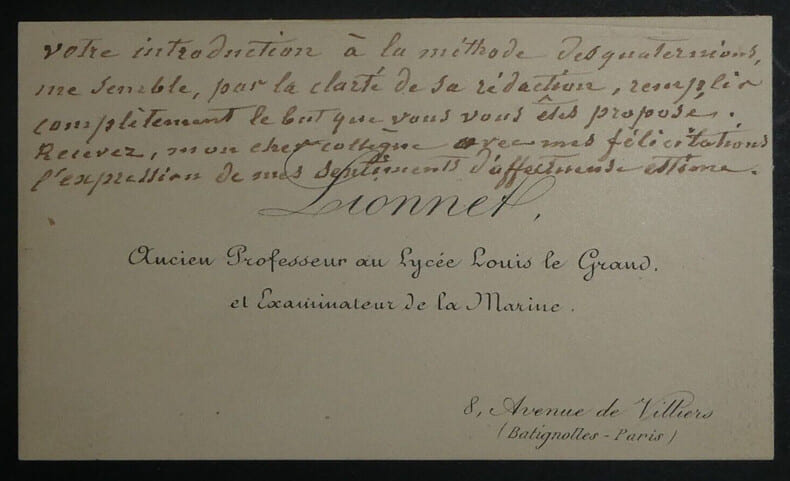 votre introduction à la méthode des quaternions,
me semble, par la clarté de sa rédaction, remplir
complètement le but que vous vous êtes proposé.
Recevez, mon cher collègue avec mes félicitations
l'expression de mes sentiments d'affectueuse estime.
Lionnet,
Ancien Professeur au Lycée Louis le Grand.
et Examinateur de la Marine.
8, Avenue de Villiers
(Batignolles - Paris)